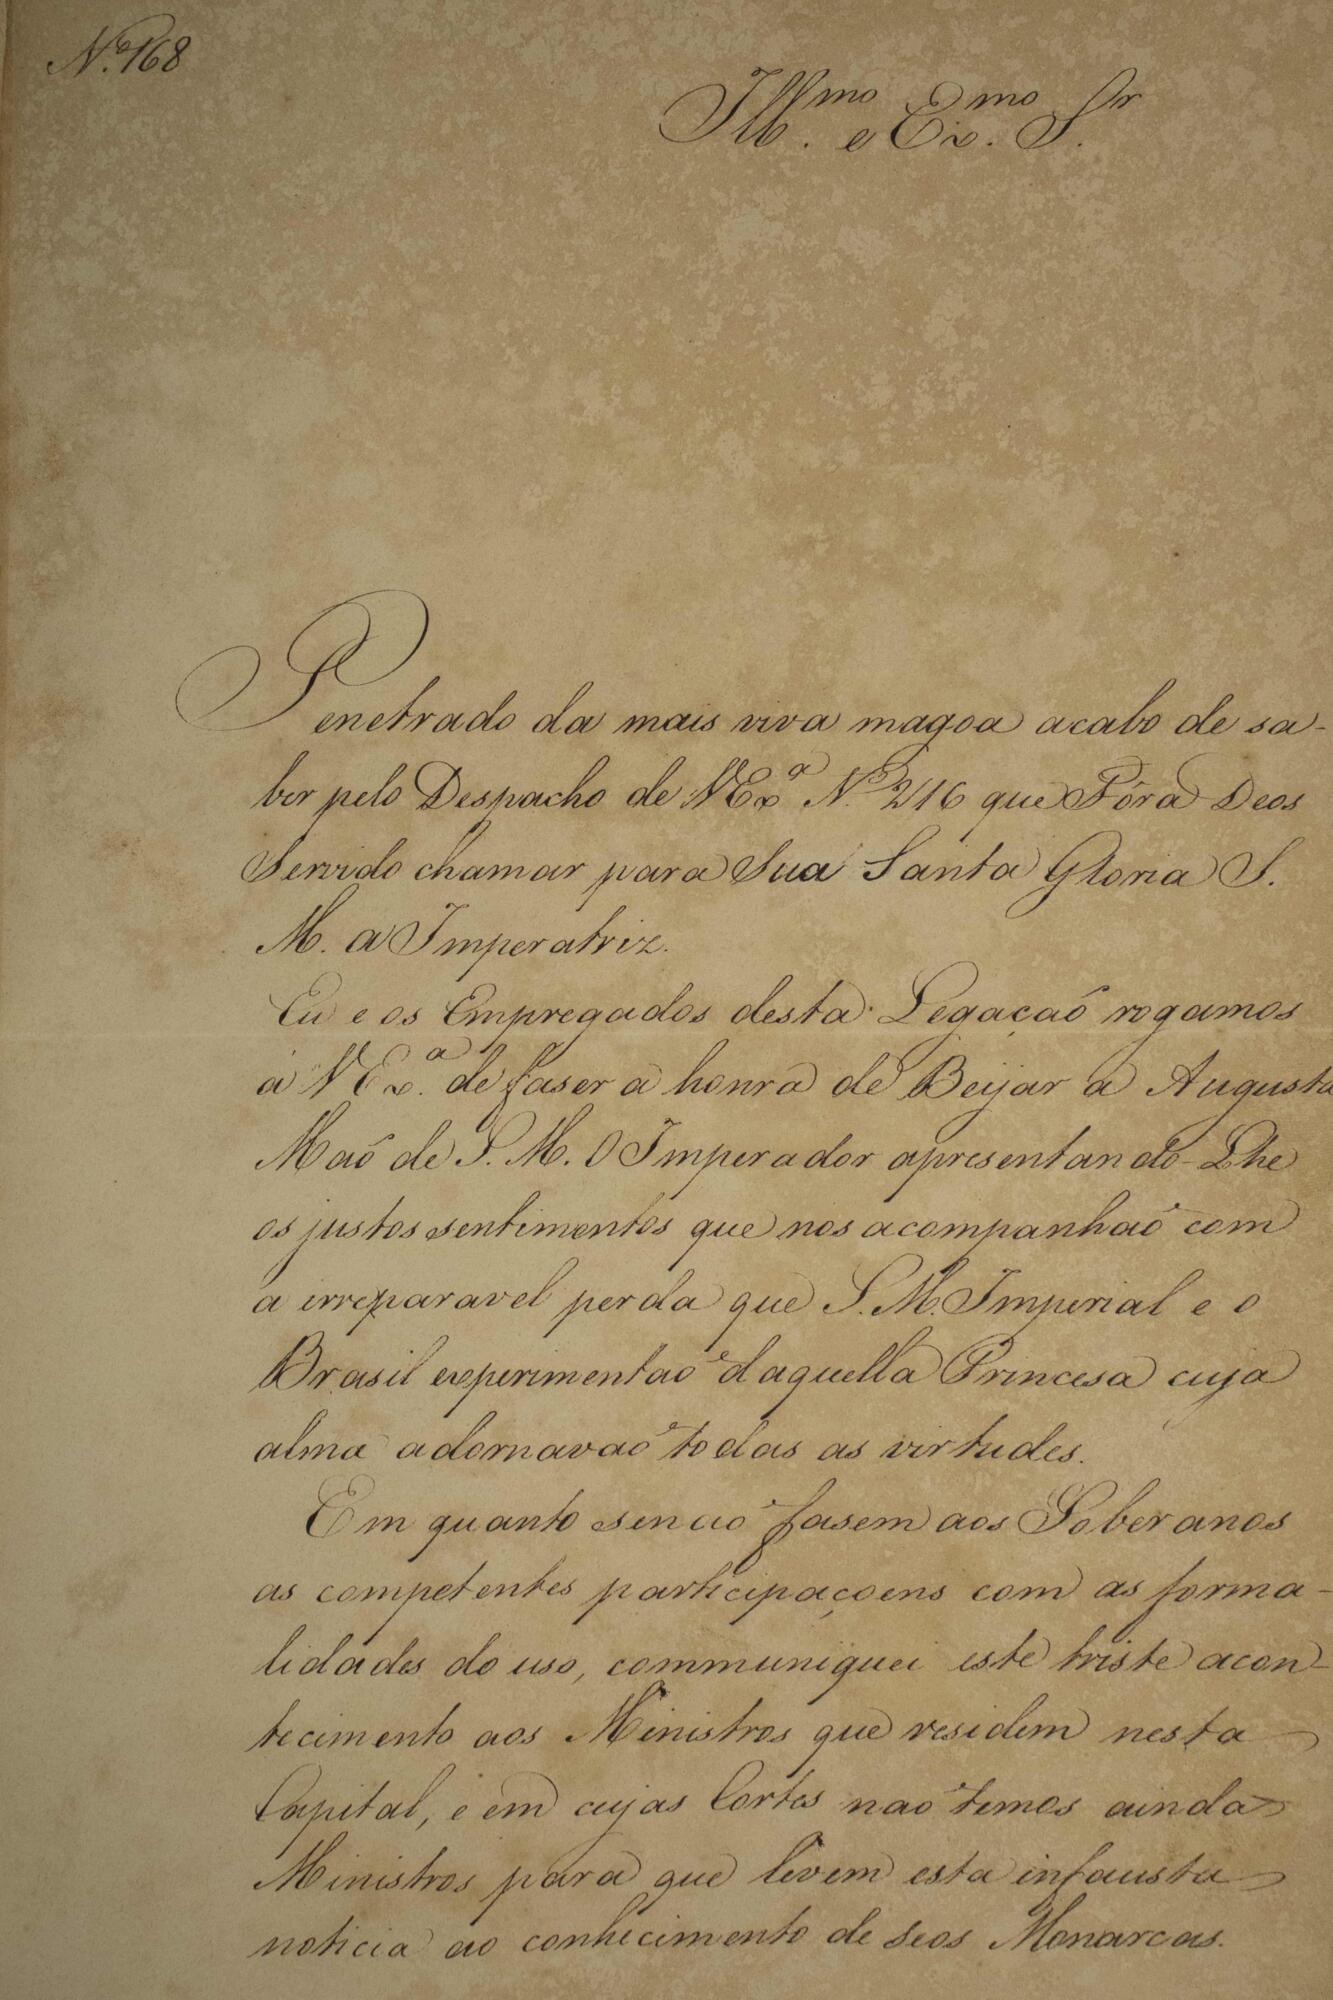 Nº. 168
Ill.mo e Ex.mo Sr.
Penetrado da mais viva magoa acabo de sa-
ber pelo Despacho de V Ex.a Nº 216 que Fôra Deos
Servido chamar para Sua Santa Gloria S.
M. a Imperatriz.
Eu e os Empregados desta Legaçaõ rogamos
a V Ex.a de faser a honra de Beijar a Augusta
Maõ de S. M. O Imperador apresentando-Lhe
os justos sentimentos que nos acompanhaõ com
a irreparavel perda que S. M. Imperial e o
Brasil experimentaõ daquella Princesa cuja
alma adornavaõ todas as virtudes.
Em quanto se naõ fasem aos Soberanos
as competentes participaçoens com as forma-
lidades do uso, communiquei este triste acon-
tecimento aos Ministros que residem nesta
Capital, e em cujas Cortes naõ temos ainda
Ministros para que levem esta infausta
noticia ao conhecimento de seos Monarcas.